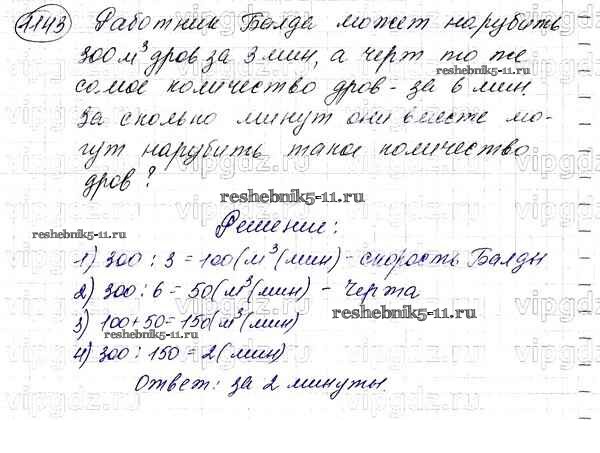 1143 Работник Балда может нарубить
300 м³ дров за 3 мин, а черт то же
самое количество дров - за 6 мин.
За сколько минут они вместе мо-
гут нарубить такое количество
дров?
Решение:
1) 300 : 3 = 100 (м³(мин) - скорость Балды
2) 300 : 6 = 50 (м³(мин) - Черта
3) 100 + 50 = 150 (м³(мин)
4) 300 : 150 = 2 (мин)
Ответ: за 2 минуты.
reshebnik5-11.ru
reshebnik5-11.ru
reshebnik5-11.ru
reshebnik5-11.ru
reshebnik5-11.ru
vipgdz.ru